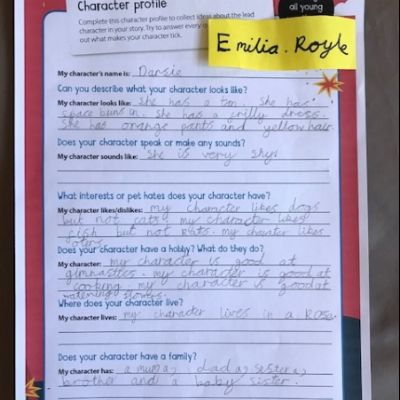 Character profile
all young
Complete this character profile to collect ideas about the lead
character in your story. Try to answer every
out what makes your character tick.
Emilia. Royle
My character's name is: Darsie
Can you describe what your character looks like?
My character looks like: she has a tan. She has
space buns in. she has a frilly dress.
She has orange pants and yellow hair.
Does your character speak or make any sounds?
My character sounds like: She is very shy.
What interests or pet hates does your character have?
My character likes/dislikes: my character likes dogs
but not cats. my character likes
fish but not Rats. my likes
Does your character have a hobby? What do they do?
My character: my character is good at
gimnastics. my character is good at
cooking. my character is good at
Where does your character live?
My character lives: my character lives in a Rose
Does your character have a family?
My character has: a mum, dad a, sister a,
brother and a baby sister.